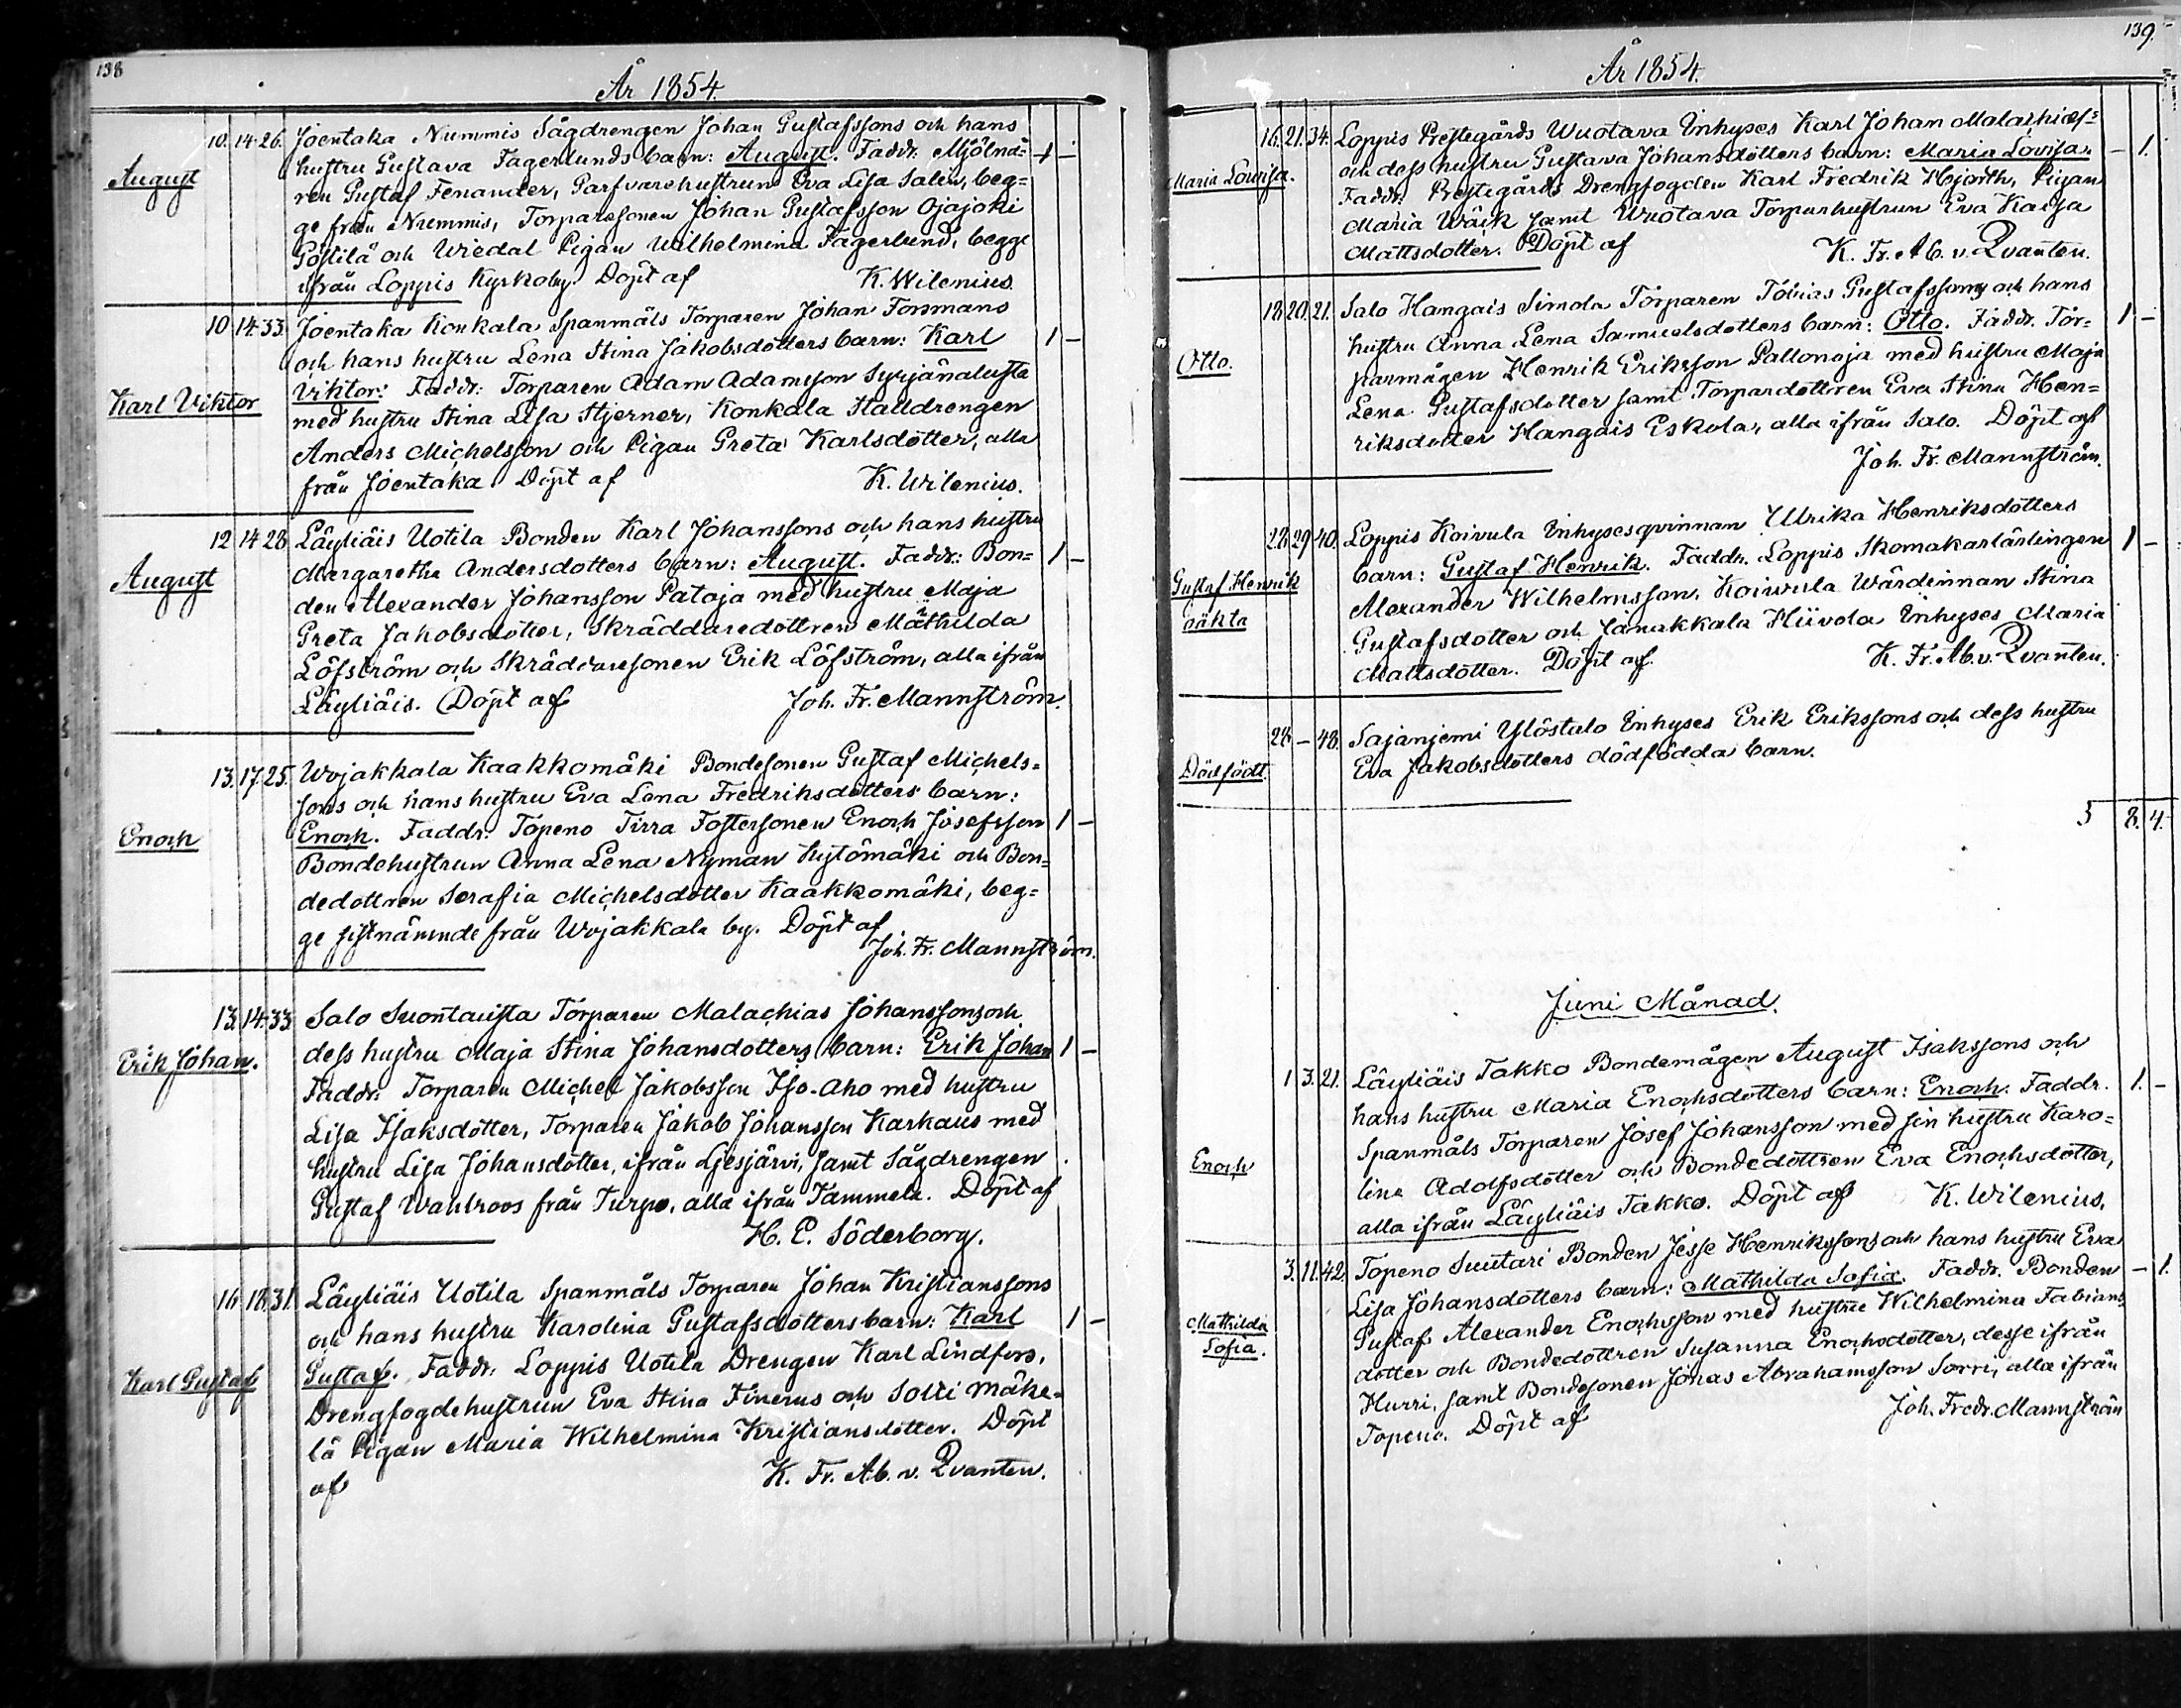 138
År 1854.
August
10. 14. 26. Joentaka Nummis Sågdrengen Johan Gustafssons och hans
hustru Gustava Fagerlunds barn: August. Faddr. Mjölna- 1 –
ren Gustaf Fenander, Garfvarehustrun Eva Lisa Salin, beg=
ge från Nummis, Torparesonen Johan Gustafsson Ojajoki
Göstilä och Wiedal Pigan Wilhelmina Fagerlund, begge
ifrån Loppis Kyrkoby. Döpt af K. Wilenius.
10 14. 33. Joentaka Konkala Spanmåls Torparen Johan Forsmans
och hans hustru Lena Stina Jakobsdotters barn: Karl 1 –
Karl Viktor
Viktor. Faddr: Torparen Adam Adamsson Syrjänalusta
med hustru Stina Lisa Stjerner, Konkala Stalldrengen
Anders Michelsson och Pigan Greta Karlsdotter, alla
från Joentaka. Döpt af K. Wilenius.
12 14 28 Läyliäis Uotila Bonden Karl Johanssons och hans hustru
August
Margaretha Andersdotters barn: August. Faddr.: Bon= 1 –
den Alexander Johansson Pataja med hustru Maja
Greta Jakobsdotter, Skräddaredottren Mathilda
Löfström och Skräddaresonen Erik Löfström, alla ifrån
Läyliäis. Döpt af Joh. Fr. Mannström.
13. 17. 25. Wojakkala Kaakkomäki Bondesonen Gustaf Michels=
sons och hans hustru Eva Lena Fredriksdotters barn:
Enoch
Enoch. Faddr. Topeno Tirra Fostersonen Enoch Josefsson 1 –
Bondehustrun Anna Lena Nyman Hystömäki och Bon=
dedottren Serafia Michelsdotter Kaakkomäki, beg=
ge sistnämnde från Wojakkala by. Döpt af
Joh. Fr. Mannström.
13. 14. 33. Salo Suontausta Torparen Malachias Johanssons och
Erik Johan.
dess hustru Maja Stina Johansdotters barn: Erik Johan 1 –
Faddr. Torparen Michel Jakobsson Iso-aho med hustru
Lisa Isaksdotter, Torparen Jakob Johansson Karkaus med
hustru Lisa Johansdotter, ifrån Ljesjärvi, samt Sågdrengen
Gustaf Wahlroos från Turpo, alla ifrån Tammela. Döpt af
H. E. Söderborg.
16 18. 31. Läyliäis Uotila Spanmåls Torparen Johan Kristianssons
och hans hustru Karolina Gustafsdotters barn: Karl 1 –
Karl Gustaf
Gustaf. Faddr. Loppis Uotila Drengen Karl Lindfors,
Drengfogdehustrun Eva Stina Finerus och Solli Mäke-
lä Pigan Maria Wilhelmina Kristiansdotter. Döpt
af K. Fr. Ab. v. Qvanten.
139.
År 1854.
16. 21. 34. Loppis Prestegårds Wuotava Inhyses Karl Johan Malachiæs=
Maria Lowisa.
och dess hustru Gustava Johansdotters barn: Maria Lovisa. – 1.
Faddr. Prestegårds Drengfogden Karl Fredrik Hjorth, Pigan
Maria Wäik samt Wuotava Torparhustrun Eva Kaisa
Mattsdotter. Döpt af K. Fr. Ab. v. Qvanten.
18 20. 21. Salo Hangais Simola Torparen Tobias Gustafssons och hans
Otto.
hustru Anna Lena Samuelsdotters barn: Otto. Faddr. Tor= 1 –
parmågen Henrik Eriksson Pallonoja med hustru Maja
Lena Gustafsdotter samt Torpardottren Eva Stina Hen=
riksdotter Hangais Eskola, alla ifrån Salo. Döpt af
Joh. Fr. Mannström.
28. 29 40. Loppis Koivula Inhysesqvinnan Ulrika Henriksdotters
Gustaf Henrik
oäkta
barn: Gustaf Henrik. Faddr. Loppis Skomakarlärlingen 1 –
Alexander Wilhelmsson, Koiwula Wärdinnan Stina
Gustafsdotter och Janakkala Hiivola Inhyses Maria
Mattsdotter. Döpt af K. Fr. Ab. v. Qvanten.
28 – 48. Sajaniemi Ylöstalo Inhyses Erik Erikssons och dess hustru
Dödfödt
Eva Jakobsdotters dödfödda barn.
8. 4.
Juni Månad.
1 3. 21. Läyliäis Takko Bondemågen August Isakssons och
hans hustru Maria Enochsdotters barn: Enoch. Faddr. 1. –
Spanmåls Torparen Josef Johansson med sin hustru Karo=
Enoch
lina Adolfsdotter och Bondedottren Eva Enochsdotter,
alla ifrån Läyliäis Takko. Döpt af K. Wilenius.
3. 11. 42. Topeno Suutari Bonden Jesse Henrikssons och hans hustru Eva
Lisa Johansdotters barn: Mathilda Sofia. Faddr. Bonden – 1.
Mathilda
Sofia.
Gustaf Alexander Enochsson med hustru Wilhelmina Fabians
dotter och Bondedottren Susanna Enochsdotter, desse ifrån
Hurri, samt Bondesonen Jonas Abrahamsson Sorri, alla ifrån
Topeno. Döpt af Joh. Fredr. Mannström